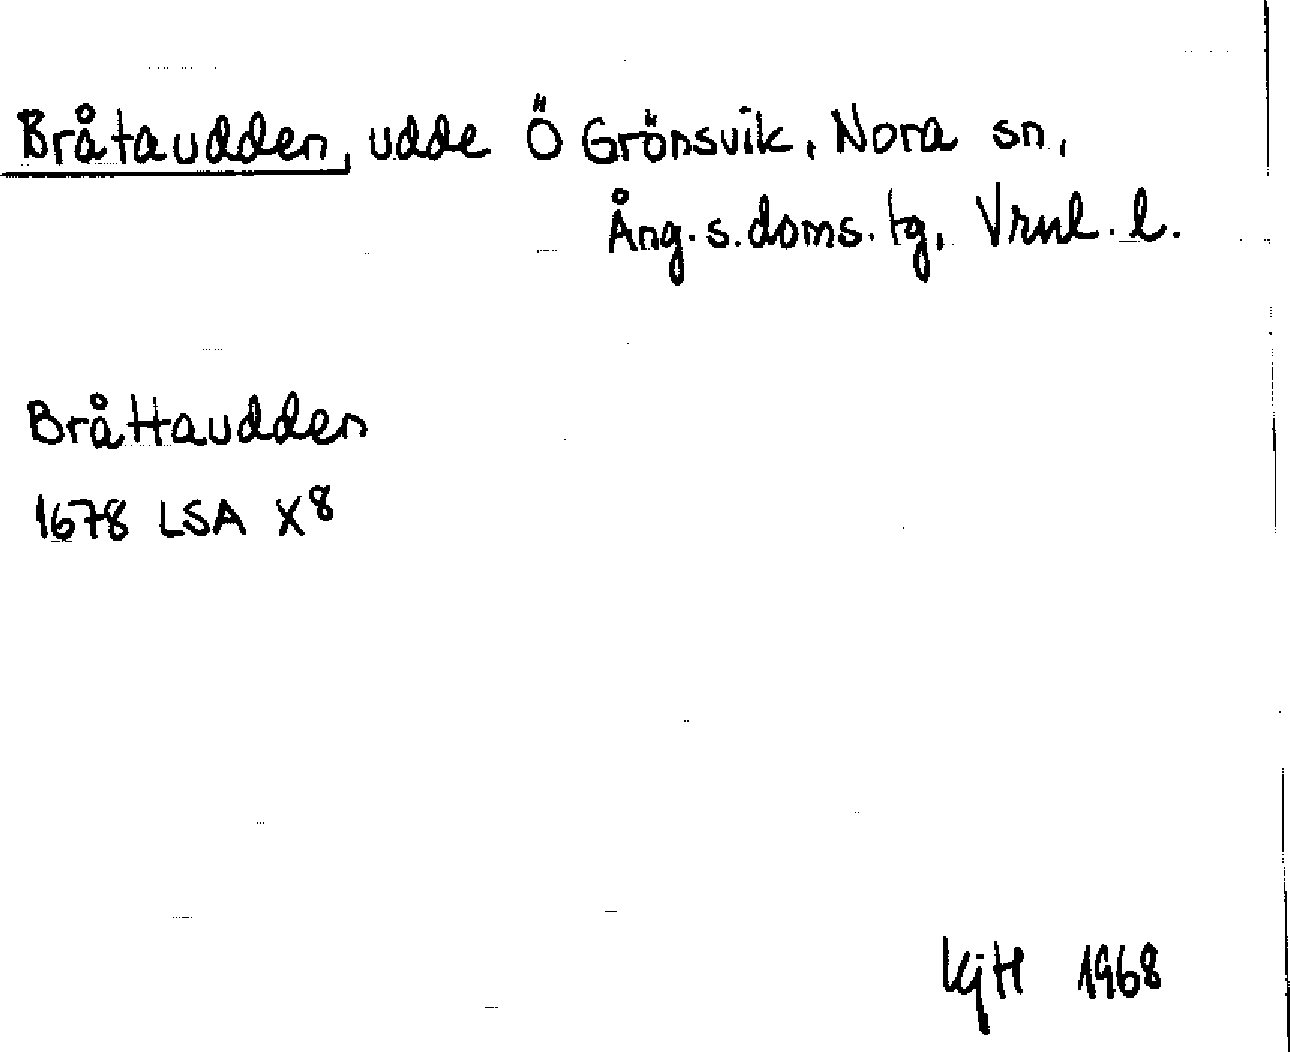 Bråtaudden, udde Ö Grönsvik, Nora sn,
Ång.s.doms.tg, Vrnl.l.
Bråttaudden
1678 LSA X8
KjH 1968